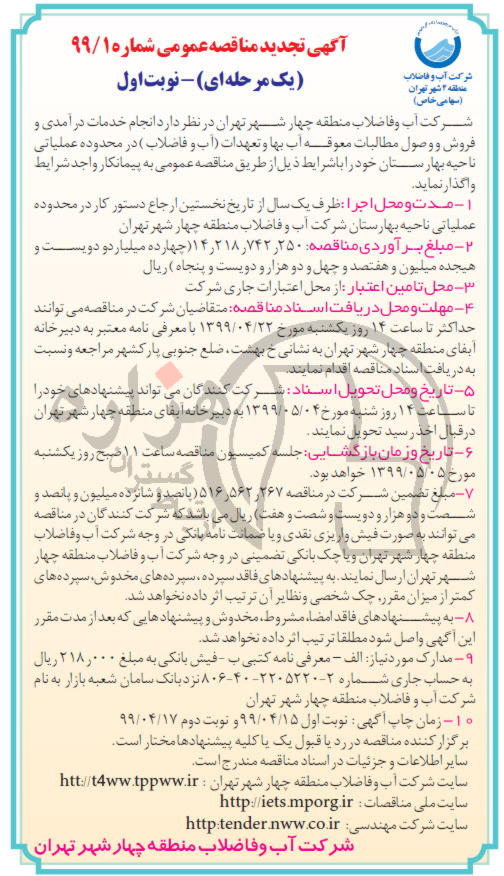 آگهی تجدید مناقصه عمومی شماره ۹۹/۱
(یک مرحله‌ای) – نوبت اول
شرکت آب و فاضلاب
منطقه ۴ شهر تهران
(سهامی خاص)
شرکت آب و فاضلاب منطقه چهار شهر تهران در نظر دارد انجام خدمات درآمدی و
فروش و وصول مطالبات معوقه آب بها و تعهدات (آب و فاضلاب) در محدوده عملیاتی
ناحیه بهارستان خود را با شرایط ذیل از طریق مناقصه عمومی به پیمانکار واجد شرایط
واگذار نماید.
۱- مدت و محل اجرا: ظرف یک سال از تاریخ نخستین ارجاع دستور کار در محدوده
عملیاتی ناحیه بهارستان شرکت آب و فاضلاب منطقه چهار شهر تهران
۲- مبلغ برآوردی مناقصه: ۱۴٫۲۱۸٫۷۴۲٫۲۵۰ (چهارده میلیارد و دویست و
هیجده میلیون و هفتصد و چهل و دو هزار و دویست و پنجاه) ریال
۳- محل تامین اعتبار: از محل اعتبارات جاری شرکت
۴- مهلت و محل دریافت اسناد مناقصه: متقاضیان شرکت در مناقصه می توانند
حداکثر تا ساعت ۱۴ روز یکشنبه مورخ ۱۳۹۹/۰۴/۲۲ با معرفی نامه معتبر به دبیرخانه
آبفای منطقه چهار شهر تهران به نشانی خ بهشت، ضلع جنوبی پارکشهر مراجعه و نسبت
به دریافت اسناد مناقصه اقدام نمایند.
۵- تاریخ و محل تحویل اسناد: شرکت کنندگان می تواند پیشنهادهای خود را
تا ساعت ۱۴ روز شنبه مورخ ۱۳۹۹/۰۵/۰۴ به دبیرخانه آبفای منطقه چهار شهر تهران
در قبال اخذ رسید تحویل نمایند.
۶- تاریخ و زمان بازگشایی: جلسه کمیسیون مناقصه ساعت ۱۱ صبح روز یکشنبه
مورخ ۱۳۹۹/۰۵/۰۵ خواهد بود.
۷- مبلغ تضمین شرکت در مناقصه ۵۱۶٫۵۶۲٫۲۶۷ (پانصد و شانزده میلیون و پانصد و
شصت و دو هزار و دویست و شصت و هفت) ریال می باشد که شرکت کنندگان در مناقصه
می توانند به صورت فیش واریزی نقدی و یا ضمانت نامه بانکی در وجه شرکت آب وفاضلاب
منطقه چهار شهر تهران و یا چک بانکی تضمینی در وجه شرکت آب و فاضلاب منطقه چهار
شهر تهران ارسال نمایند. به پیشنهادهای فاقد سپرده، سپرده‌های مخدوش، سپرده‌های
کمتر از میزان مقرر، چک شخصی و نظایر آن ترتیب اثر داده نخواهد شد.
۸- به پیشنهادهای فاقد امضا، مشروط، مخدوش و پیشنهادهایی که بعد از مدت مقرر
این آگهی واصل شود مطلقا ترتیب اثر داده نخواهد شد.
۹- مدارک مورد نیاز: الف - معرفی نامه کتبی ب - فیش بانکی به مبلغ ۲۱۸٫۰۰۰ ریال
به حساب جاری شماره ۲-۲۲۰۵۲۲۰-۴۰-۸۰۶ نزد بانک سامان شعبه بازار به نام
شرکت آب و فاضلاب منطقه چهار شهر تهران
۱۰- زمان چاپ آگهی: نوبت اول ۹۹/۰۴/۱۵ و نوبت دوم ۹۹/۰۴/۱۷
برگزار کننده مناقصه در رد یا قبول یک یا کلیه پیشنهادها مختار است.
سایر اطلاعات و جزئیات در اسناد مناقصه مندرج است.
سایت شرکت آب وفاضلاب منطقه چهار شهر تهران : htt://t4ww.tppww.ir
سایت ملی مناقصات : http://iets.mporg.ir
سایت شرکت مهندسی: http:tender.nww.co.ir
شرکت آب و فاضلاب منطقه چهار شهر تهران